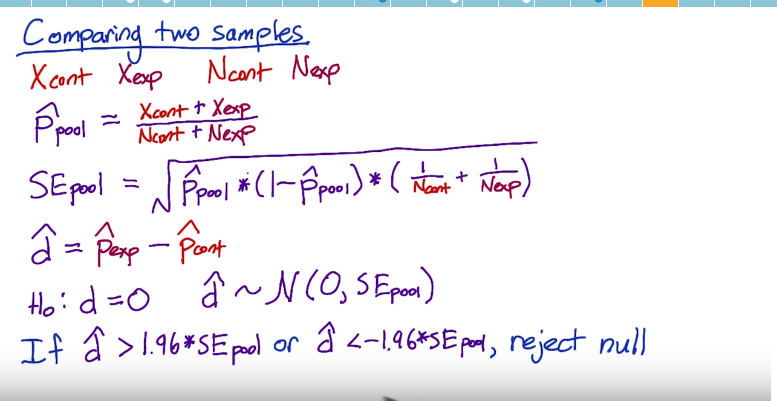 Comparing two samples
Xcont Xexp Ncont Nexp
p̂pool = Xcont + Xexp / Ncont + Nexp
SEpool = √(p̂pool * (1-p̂pool) * (1/Ncont + 1/Nexp))
d̂ = p̂exp - p̂cont
H₀: d = 0 d̂ ~ N(0, SEpool)
If d̂ > 1.96*SEpool or d̂ < -1.96*SEpool, reject null